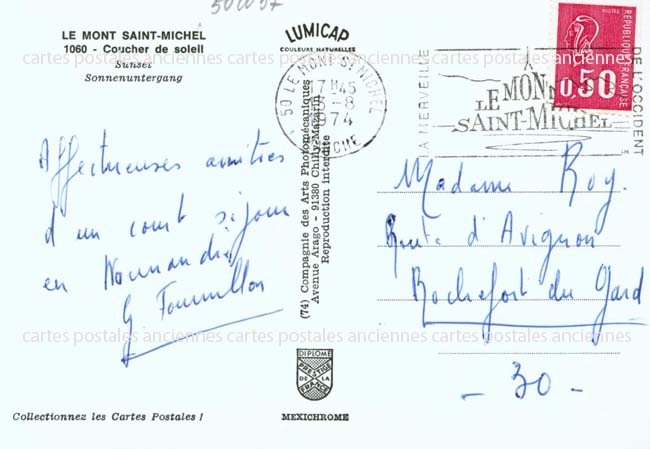 LE MONT SAINT-MICHEL
1060 - Coucher de soleil
Sunset
Sonnenuntergang
LUMICAP
COULEURS NATURELLES
cartes postales anciennes cartes postales anciennes cartes postales anciennes
50 LE MONT ST MICHEL
17H45
13-8
1974
MANCHE
LA MERVEILLE
DE L'OCCIDENT
LE MONT
SAINT-MICHEL
REPUBLIQUE FRANÇAISE
POSTES
0,50
Affectueuses amitiés
d'un court séjour
en Normandie
G Fournillon
(74) Compagnie des Arts Photomécaniques
Avenue Arago - 91380 Chilly-Mazarin
Reproduction interdite
Madame Roy.
Route d'Avignon
Rochefort du Gard
- 30 -
cartes postales anciennes cartes postales anciennes cartes postales anciennes
DIPLOME
PRESTIGE
DE LA
FRANCE
MEXICHROME
Collectionnez les Cartes Postales !